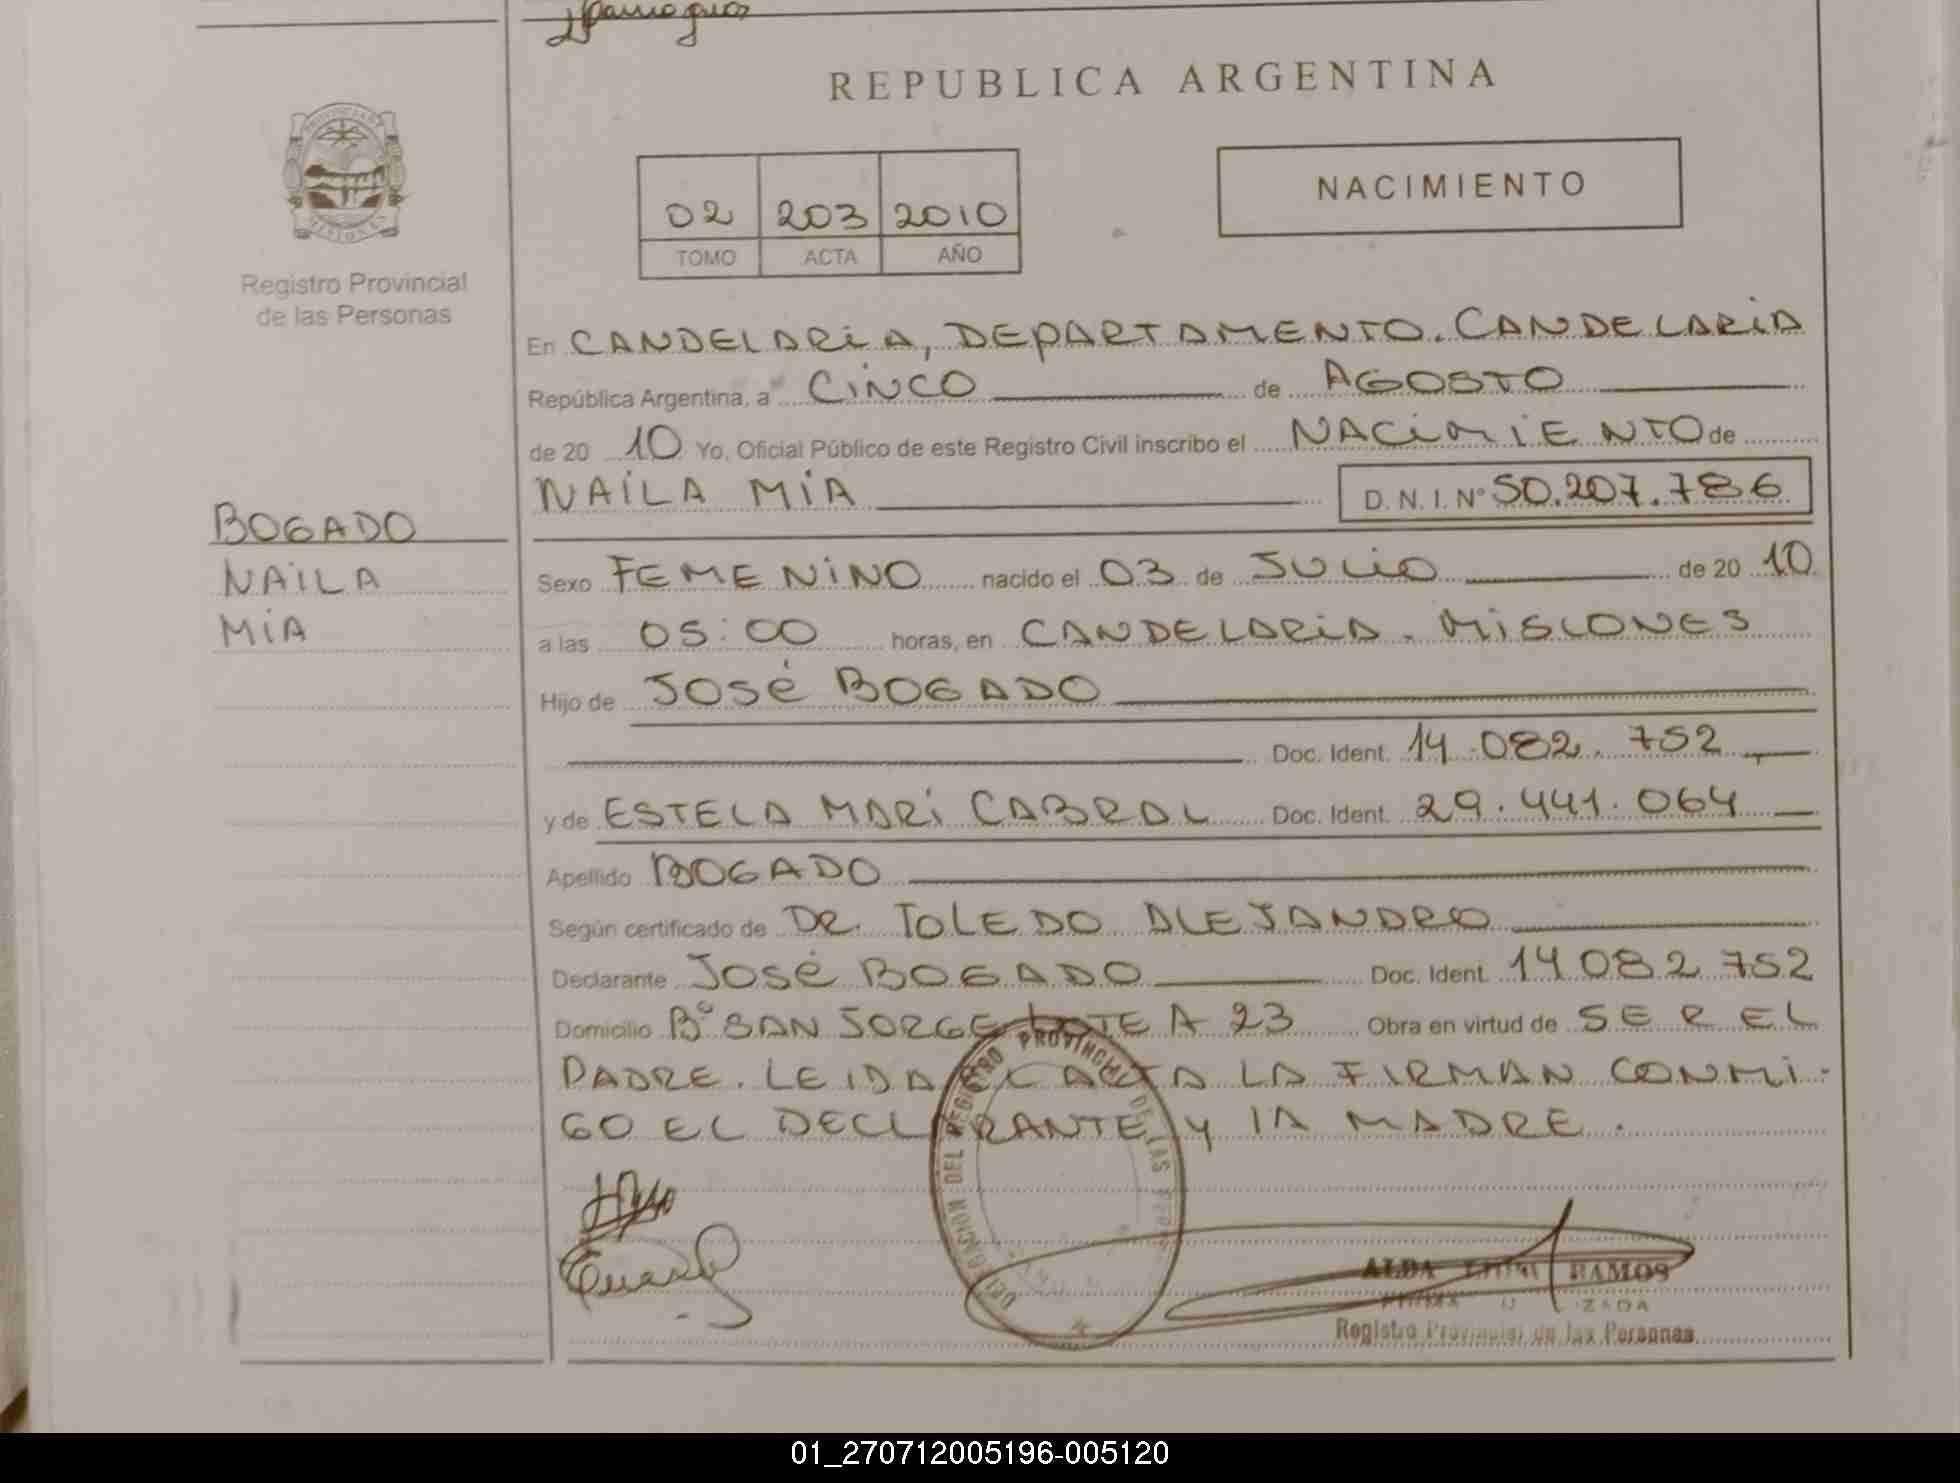 REPUBLICA ARGENTINA
PROVINCIA DE
MISIONES
Registro Provincial
de las Personas
02 203 2010
TOMO ACTA AÑO
NACIMIENTO
En CANDELARIA, DEPARTAMENTO. CANDELARIA
República Argentina, a CINCO de AGOSTO
de 20 10 Yo, Oficial Público de este Registro Civil inscribo el NACIMIENTO de
NAILA MIA D.N.I. Nº 50.207.786
BOGADO
NAILA
MIA
Sexo FEMENINO nacido el 03 de JULIO de 20 10
a las 05:00 horas, en CANDELARIA. MISIONES
Hijo de JOSÉ BOGADO
Doc. Ident. 14.082.752
y de ESTELA MARI CABRAL Doc. Ident. 29.441.064
Apellido BOGADO
Según certificado de DR. TOLEDO ALEJANDRO
Declarante JOSÉ BOGADO Doc. Ident. 14 082 752
Domicilio Bº SAN JORGE LOTE A 23 Obra en virtud de SER EL
PADRE. LEIDA EL ACTA LA FIRMAN CONMI-
GO EL DECLARANTE y LA MADRE.
DELEGACION DEL REGISTRO PROVINCIAL DE LAS
ALDA RAMOS
Registro Provincial de las Personas
01_270712005196-005120